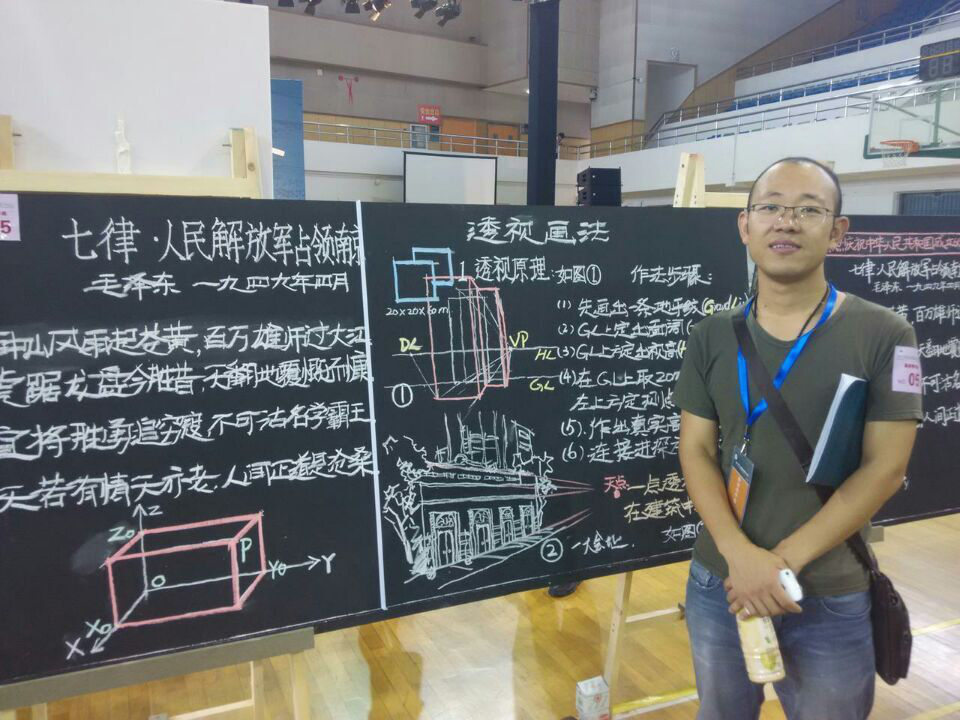 七律·人民解放军占领南京
毛泽东 一九四九年四月
钟山风雨起苍黄,百万雄师过大江
虎踞龙盘今胜昔,天翻地覆慨而慷
宜将胜勇追穷寇,不可沽名学霸王
天若有情天亦老,人间正道是沧桑
Z
Z0
P
O
Y0
Y
X0
X
透视画法
1.透视原理:如图①
20x20x60m
DL
VP
HL
GL
①
②
作法步骤:
(1) 先画出一条地平线(
(2) GL上定出画阔(
(3) GL上方定出视高(
(4) 在GL上取20
左上方定视点
(5). 作出真实高
(6). 连接进探
天点
一点透
在建筑
如图
5
庆祝中华人民共和国成立
七律·人民解放军占领南
毛泽东 一九四九年
百万雄师
天翻地覆
不可沽
人间正道
05